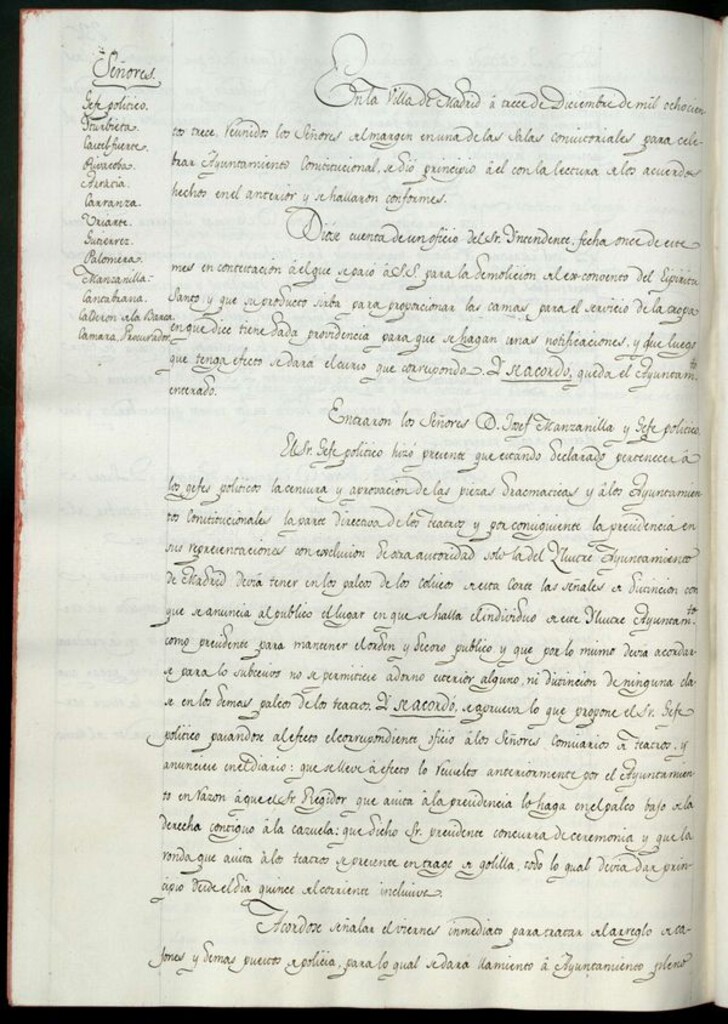 Señores.
Gefe politico.
Yturbieta.
Castelfuerte.
Rivacoba.
Carranza.
Uriarte.
Gutierrez.
Palomera.
Manzanilla.
Cantabrana.
Calderon de la Barca
Camara, Procurador.
En la Villa de Madrid á trece de Diciembre de mil ochocien-
tos trece. Reunidos los Señores del margen en una de las Salas consistoriales para cele-
brar Ayuntamiento Constitucional, se dió principio á él con la lectura de los acuerdos
hechos en el anterior y se hallaron conformes.
Diose cuenta de un oficio del Sr. Yntendente, fecha once de este
mes en contestacion á el que se pasó á S.S. para la demolicion del ex-convento del Espiritu
Santo y que su producto sirba para proporcionar las camas para el servicio de la tropa
en que dice tiene dada providencia para que se hagan unas notificaciones, y que luego
que tenga efecto se dará el curso que corresponda. Y se acordó, queda el Ayuntam.to
enterado.
Entraron los Señores D. Josef Manzanilla y Gefe politico.
El Sr. Gefe politico hizó presente que estando declarado pertenecer á
los gefes politicos la censura y aprovacion de las piezas dramaticas y á los Ayuntamien-
tos Constitucionales la parte directiva de los teatros y por consiguiente la presidencia en
sus representaciones con exclusion de otra autoridad solo la del Yllustre Ayuntamiento
de Madrid devia tener en los palcos de los coliseos de esta Corte las señales de distincion con
que se anuncia al publico el lugar en que se halla el individuo de este Yllustre Ayuntam.to
como presidente para mantener el orden y decoro publico y que por lo mismo devia acordar-
se para lo subcesivo no se permitiese adorno exterior alguno, ni distincion de ninguna cla-
se en los demas palcos de los teatros. Y se acordó, se aprueva lo que propone el Sr. Gefe
politico pasandose al efecto el correspondiente oficio á los Señores Comisarios de teatros, y
anunciese en el diario: que se lleve á efecto lo resuelto anteriormente por el Ayuntamien-
to en razon á que el Sr. Regidor que asista á la presidencia lo haga en el palco bajo de la
derecha contiguo á la cazuela: que dicho Sr. presidente concurra de ceremonia y que la
ronda que asista á los teatros se presente en trage de golilla, todo lo qual devia dar prin-
cipio desde el dia quince del corriente inclusive.
Acordose señalar el viernes inmediato para tratar del arreglo de ca-
jones y demas puestos de policia, para lo qual se dará llamiento á Ayuntamiento pleno